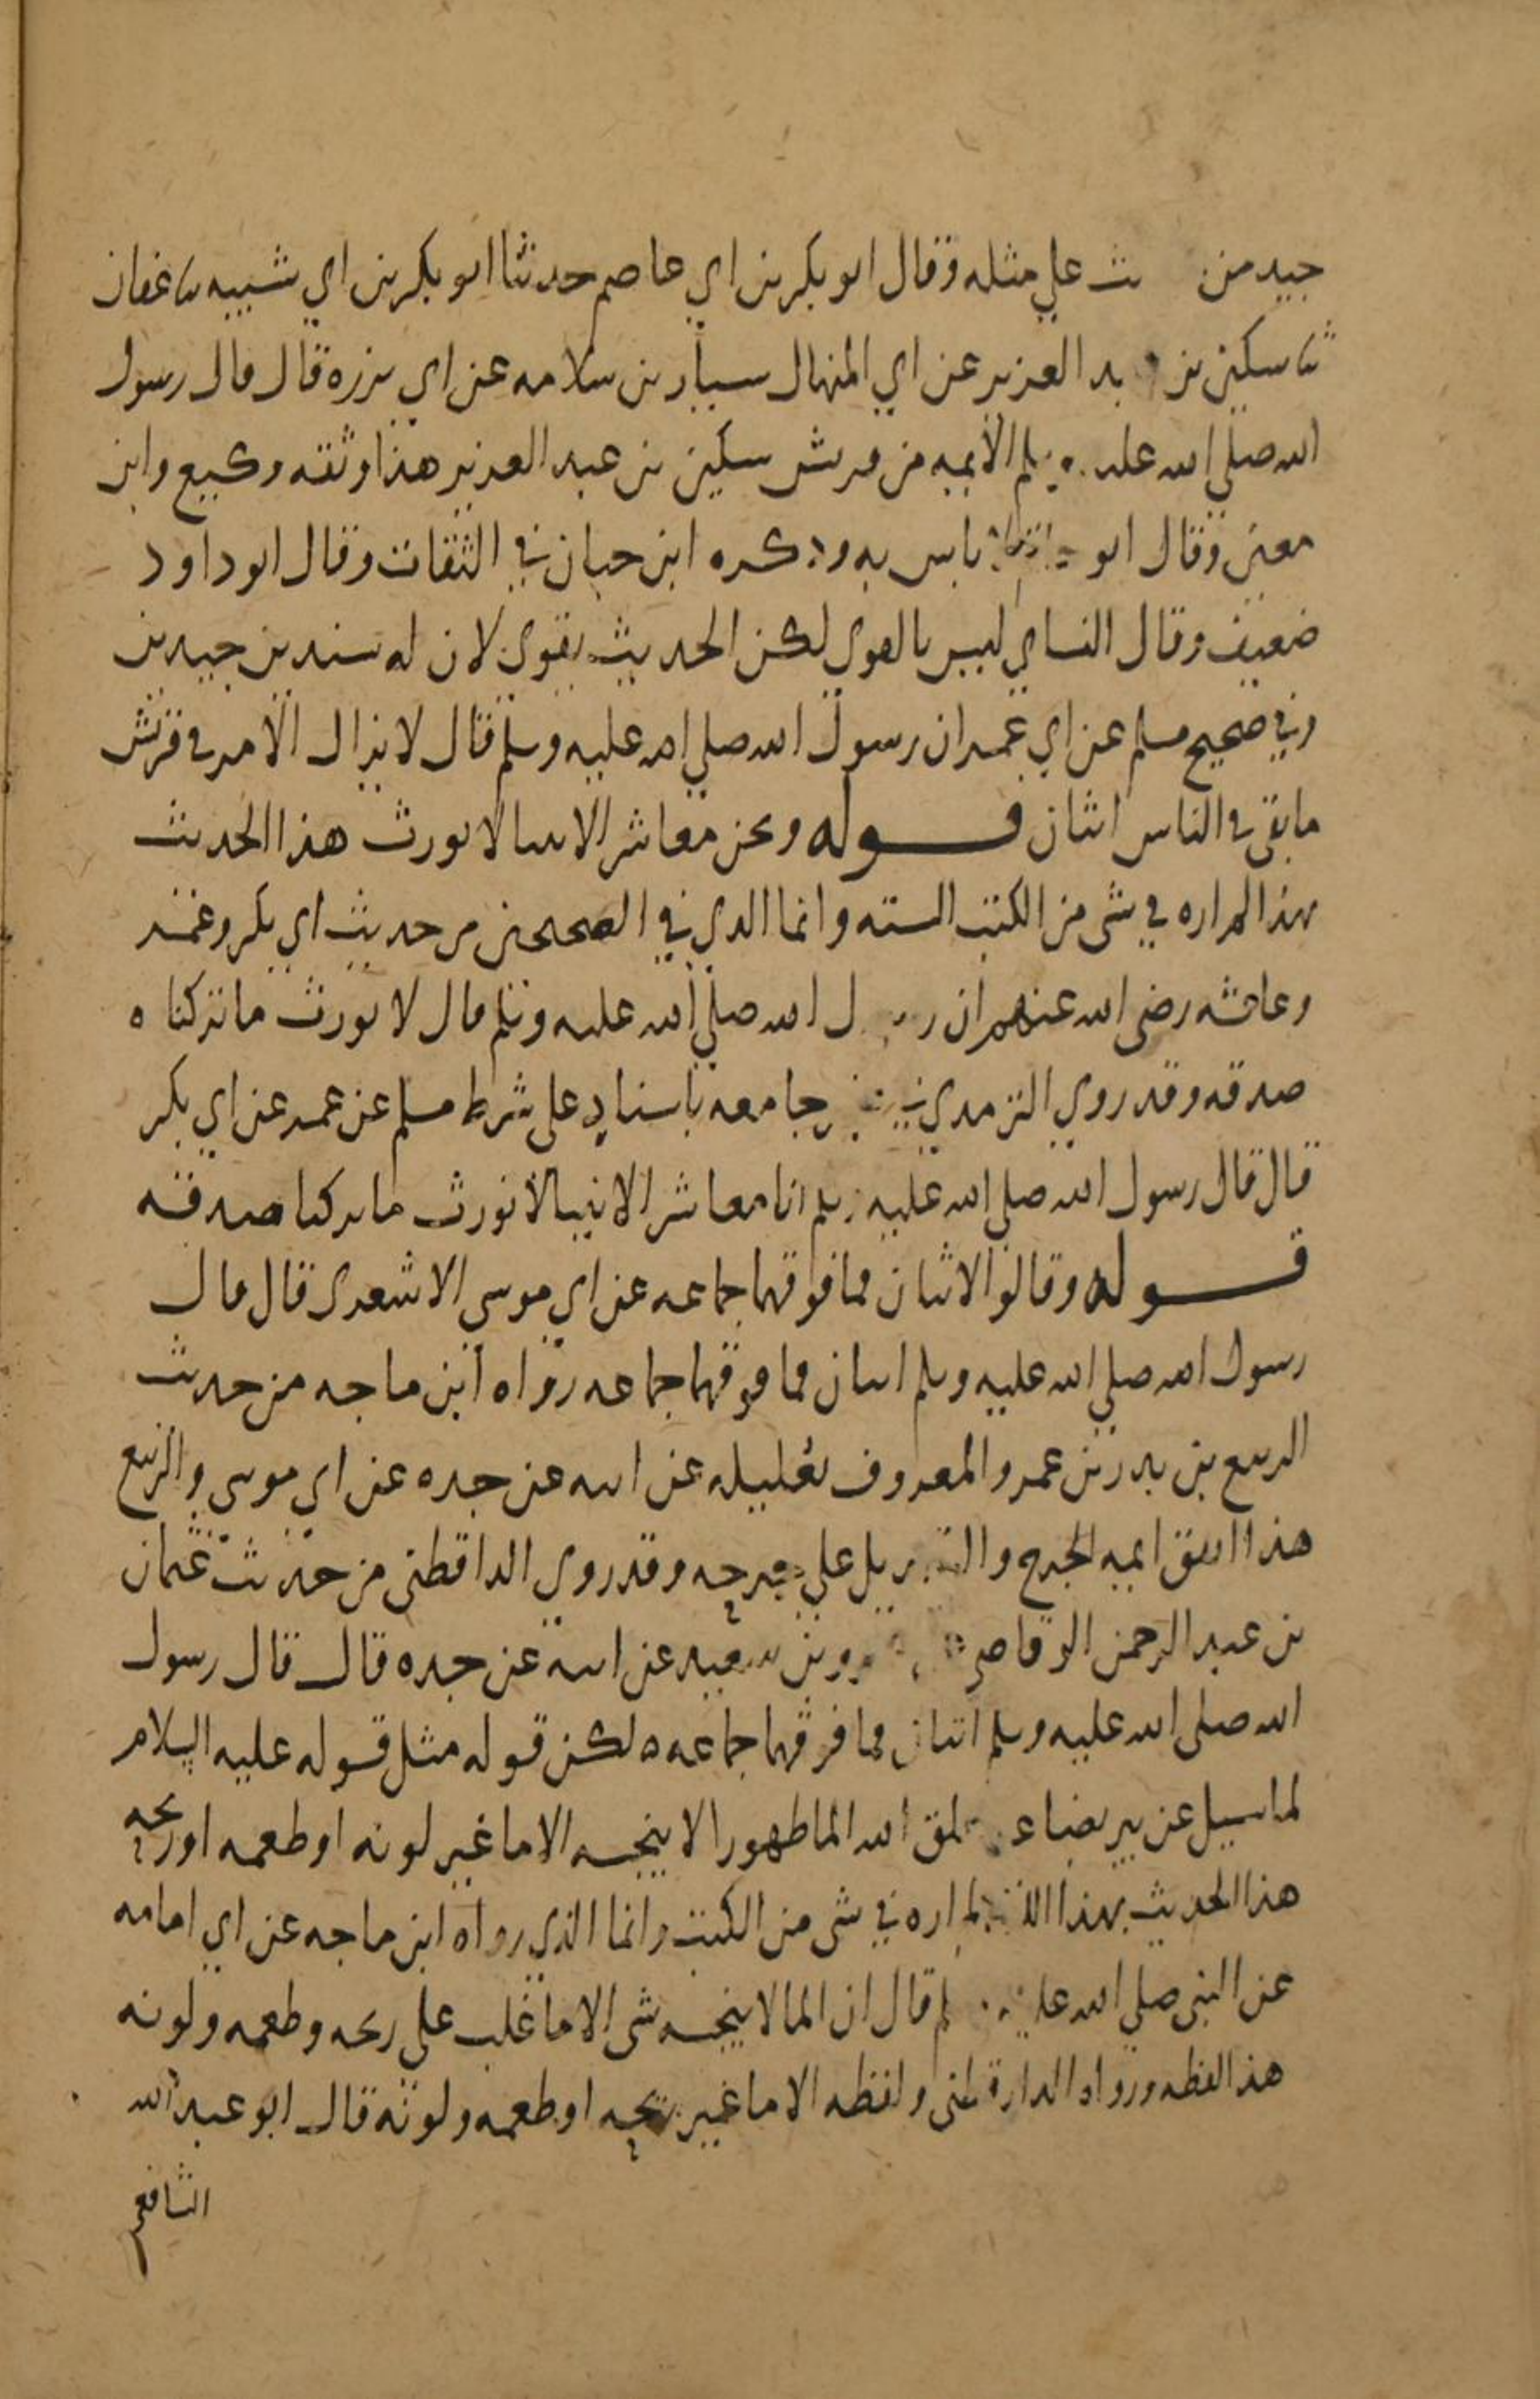 جيد من ث علي مثله وقال ابو بكر بن ابي عاصم حدثنا ابو بكر بن ابي شيبه ثنا عفان
ثنا سكين بن عبد العزيز عن ابي المنهال سيار بن سلامه عن ابي برزه قال قال رسول
الله صلي الله عليه وسلم الأيمه من قريش سكين بن عبد العزيز هذا وثقه وكيع وابن
معين وقال ابو حاتم لا باس به وذكره ابن حبان في الثقات وقال ابو داود
ضعيف وقال النساي ليس بالقوي لكن الحديث يقوي لان له سندين جيدين
وفي صحيح مسلم عن ابي عمر ان رسول الله صلي الله عليه وسلم قال لا يزال الامر في قريش
ما بقي في الناس اثنان قوله ونحن معاشر الانبيا لا نورث هذا الحديث
بهذا لم اره في شي من الكتب السته وانما الذي في الصحيحين من حديث ابي بكر وعمر
وعائشه رضي الله عنهم ان رسول الله صلي الله عليه وسلم قال لا نورث ما تركناه
صدقه وقد روي الترمدي في جامعه باسناد على شرط مسلم عن عمر عن ابي بكر
قال قال رسول الله صلي الله عليه وسلم انا معاشر الانبيا لا نورث ما تركنا صدقه
قوله وقالوا الاثنان فما فوقهما جماعه عن ابي موسي الاشعري قال قال
رسول الله صلي الله عليه وسلم اثنان فما فوقهما جماعه رواه ابن ماجه من حديث
الربيع بن بدر بن عمرو المعروف بعليله عن ابيه عن جده عن ابي موسي والربيع
هذا اتفق ايمه الجرح والتعديل علي جرحه وقد روي الداقطني من حديث عثمان
بن عبد الرحمن الوقاصي عن عمرو بن سعيد عن ابيه عن جده قال قال رسول
الله صلى الله عليه وسلم اثنان فما فوقهما جماعه ه لكن قوله مثل قوله عليه السلام
لما سيل عن بير بضاعه خلق الله الما طهورا لا ينجسه الا ما غير لونه او طعمه او ريحه
هذا الحديث بهذا اللفظ لم اره في شي من الكتب وانما الذي رواه ابن ماجه عن ابي امامه
عن النبي صلي الله عليه وسلم قال ان الما لا ينجسه شي الا ما غلب علي ريحه وطعمه ولونه
هذا لفظه ورواه الدارقطني ولفظه الا ما غير ريحه او طعمه ولونه قال ابو عبد الله
الشافعي